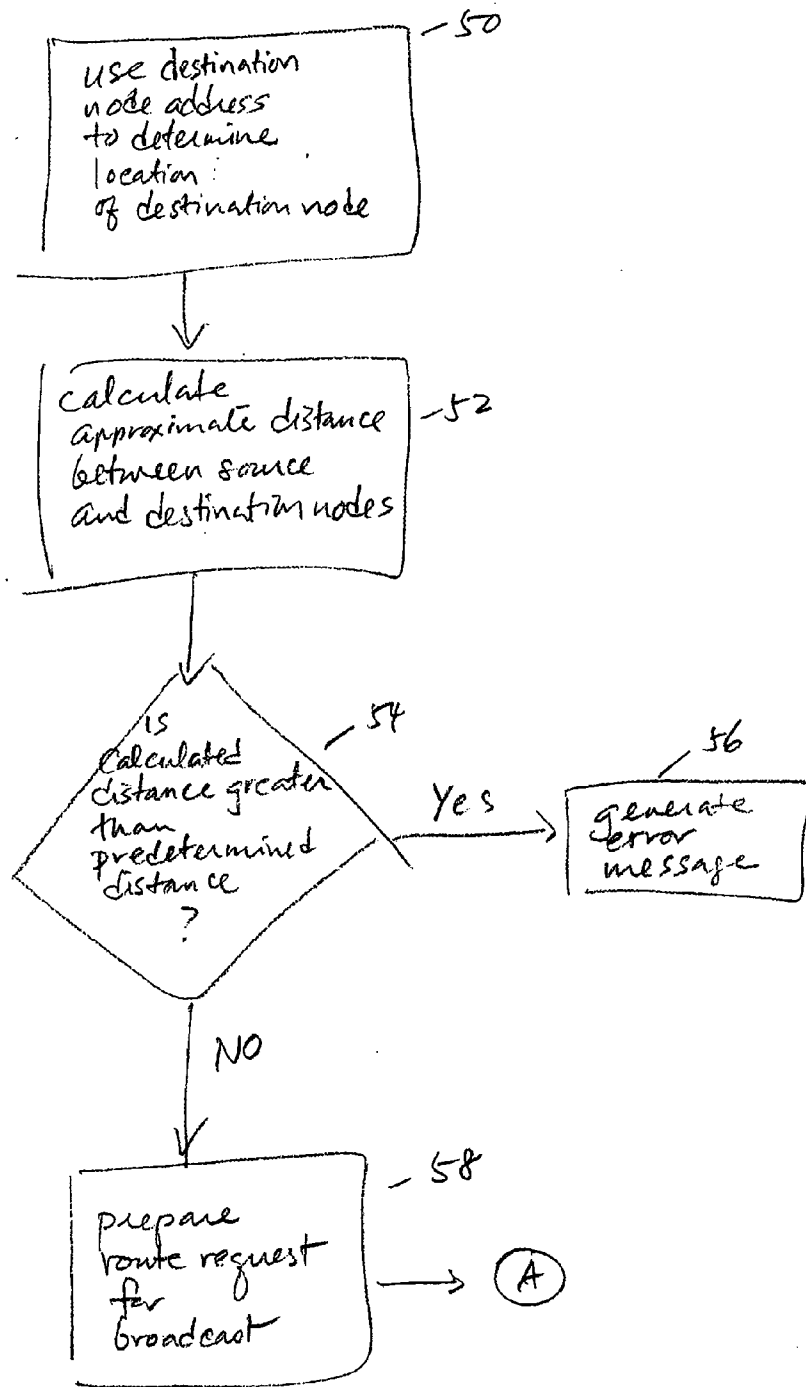 50
use destination
node address
to determine
location
of destination node
52
calculate
approximate distance
between source
and destination nodes
54
is
calculated
distance greater
than
predetermined
distance
?
Yes
56
generate
error
message
NO
58
prepare
route request
for
broadcast
A